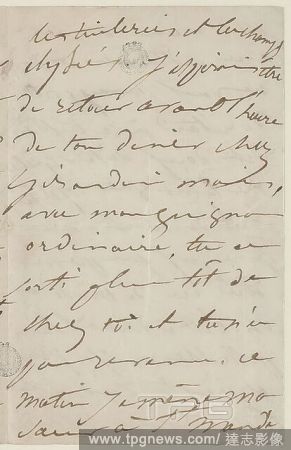 les tuileries et les champs
élysés J'espérais être
de retour avant l'heure
de ton diner chez
Girardin mais,
avec mon guignon
ordinaire, tu es
sorti plus tôt de
chez toi. et tu n'es
pas revenu. ce
matin je mène ma
sœur à St Mandé
TPG
www.tpgnews.com/達志影像